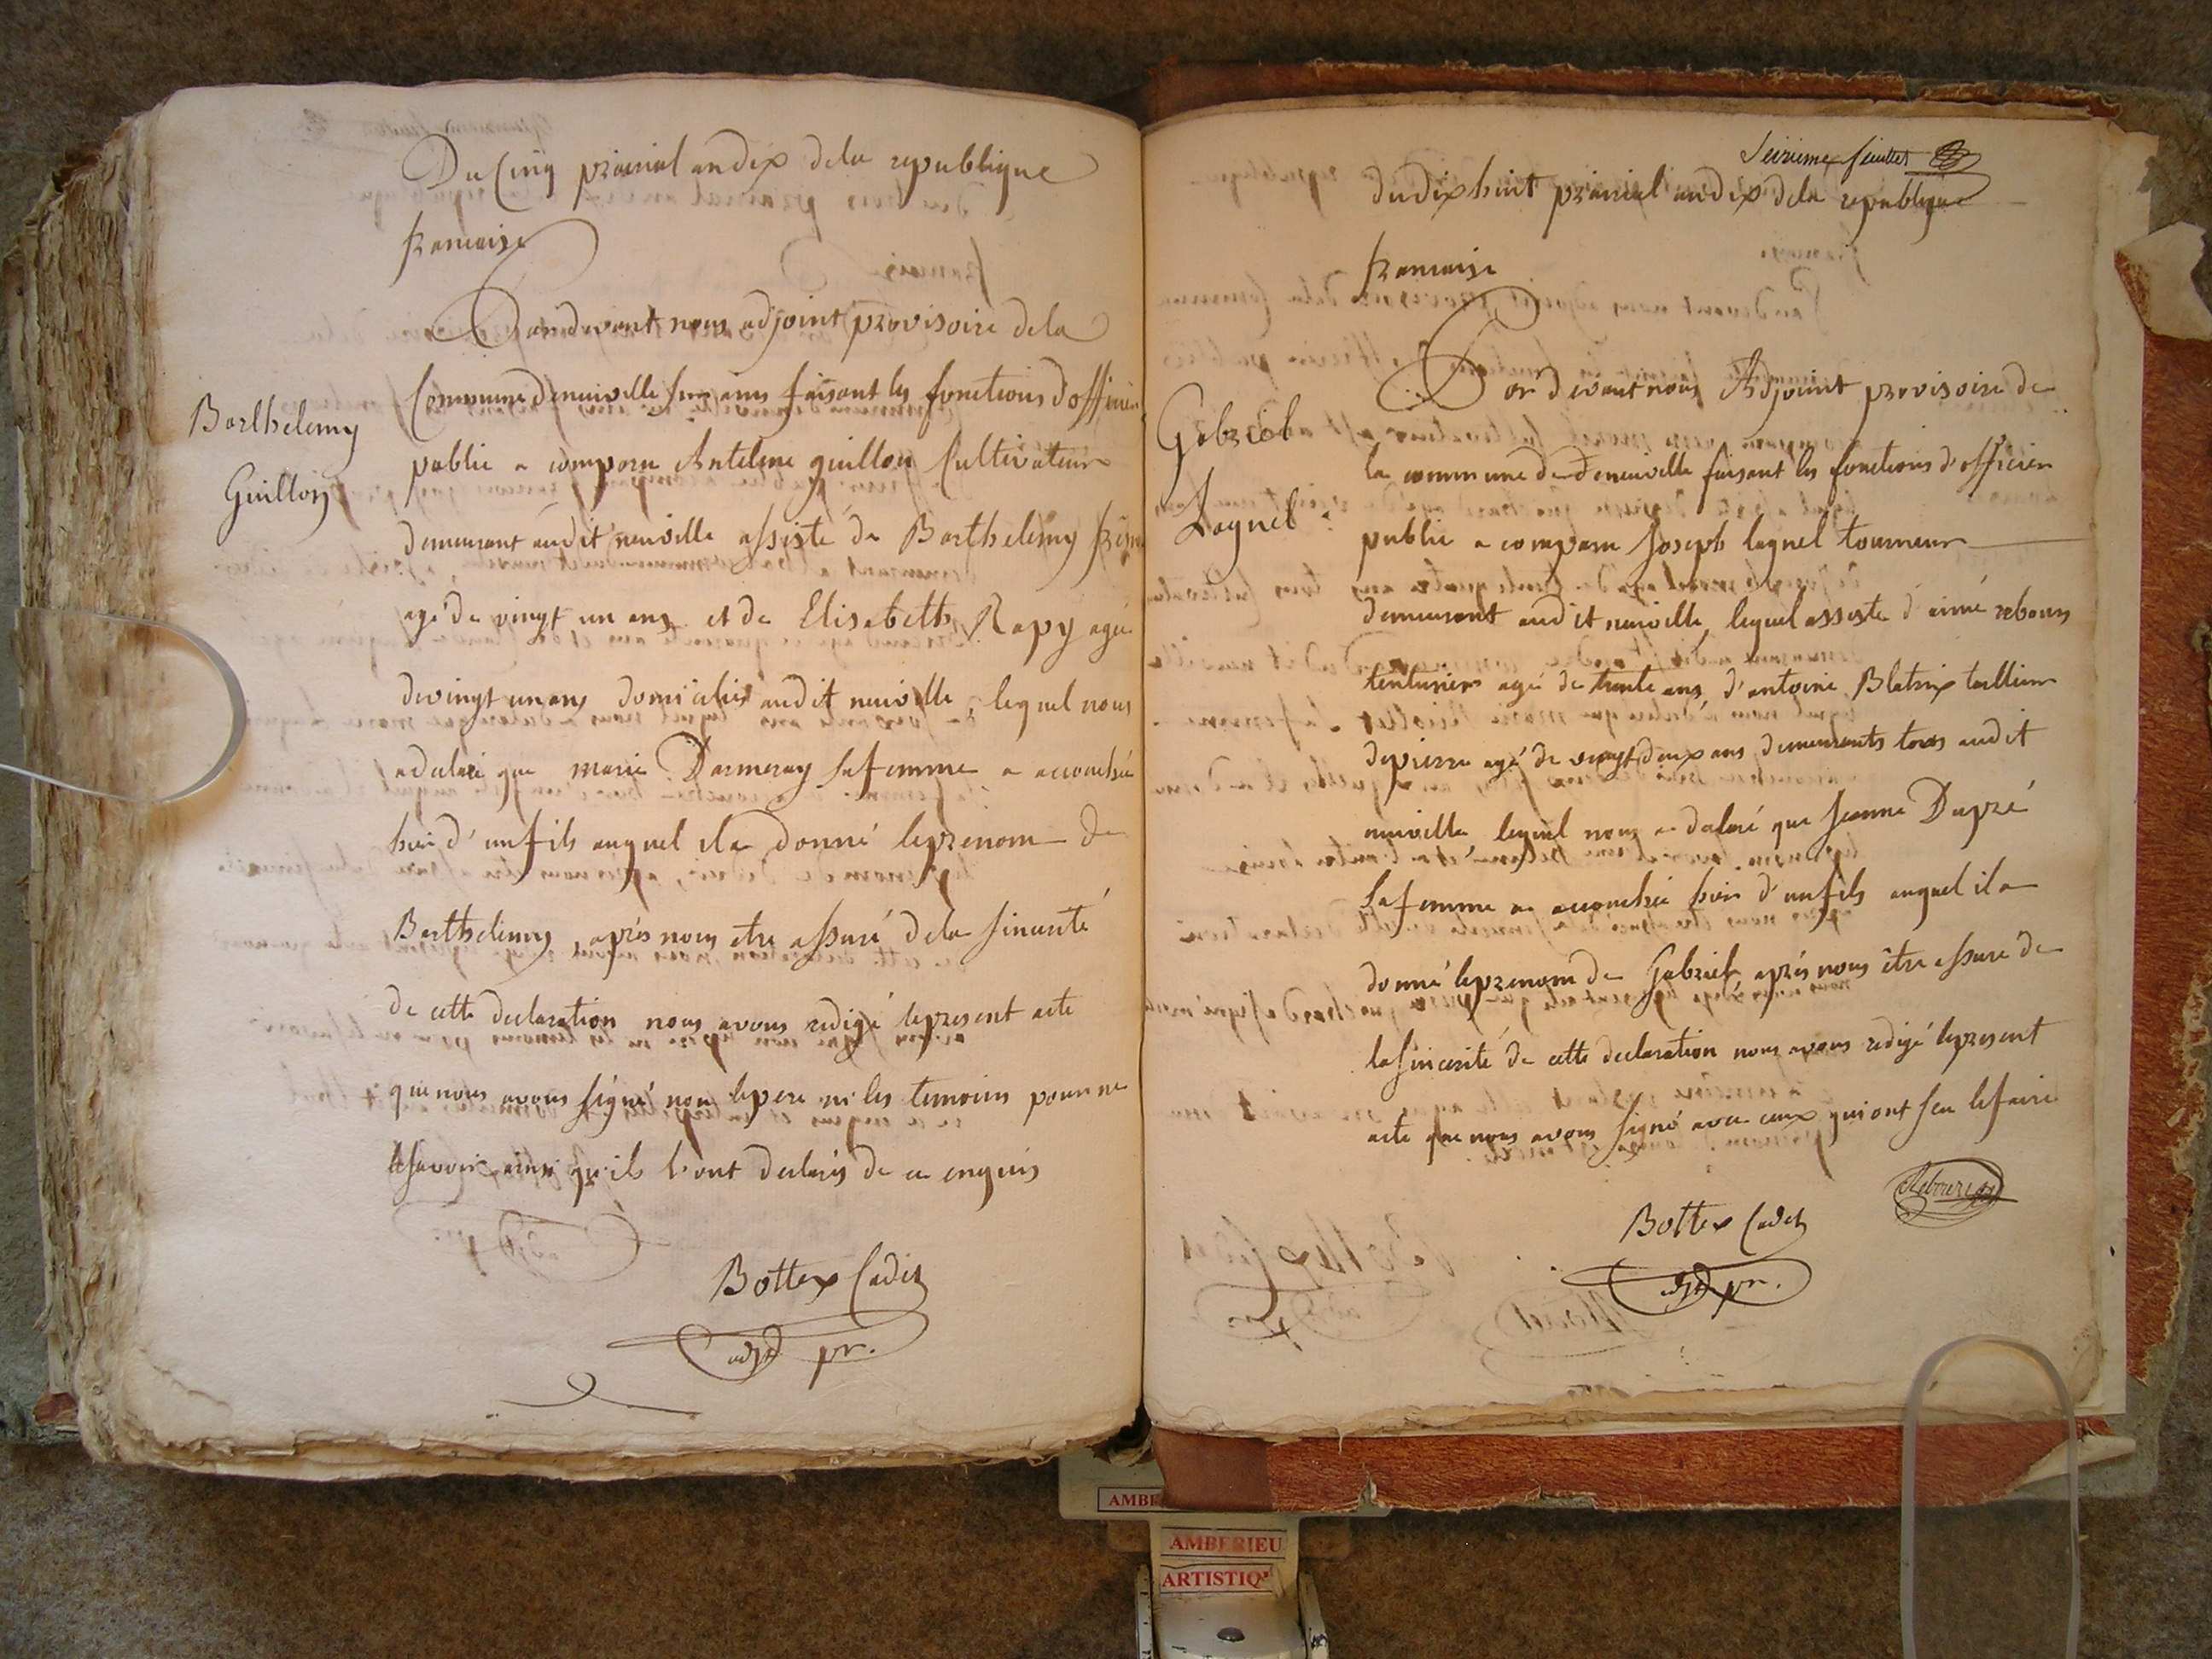 Du Cinq prairial an dix dela republique
francaise
Pardevant nous adjoint provisoire dela
Commune deneuville sur ains faisant les fonctions d'officier
public a comparu Antelme guillon Cultivateur
demeurant audit neuville assisté de Barthelemy
agé de vingt un ans et de Elisabeth Rapy agée
devingt un ans domiciliés audit neuville, lequel nous
adeclaré que marie Darmeray sa femme a accouchée
hier d'un fils auquel il a donné leprenom de
Barthelemy, après nous etre assuré dela sincerité
de cette declaration nous avons redigé lepresent acte
que nous avons signé non lepere ni les temoins pour ne
lesavoir ainsi qu'ils l'ont declarés de ce enquis
Bottex Cadet
adjt pr.
Barthelemy
Guillon
Seizieme feuillet
du dix huit prairial an dix dela republique
francaise
Par devant nous Adjoint provisoire de
la commune de deneuville faisant les fonctions d'officier
public a comparu Joseph lagnel tourneur
demeurant audit neuville, lequel assisté d'aimé rebours
tenturier agé de trente ans, d'antoine Blatrix taillieur
depierre agé de vingt deux ans demeurants tous audit
neuville lequel nous a declaré que Jeanne Dupré
sa femme a accouchée hier d'un fils auquel il a
donné leprenom de Gabriel après nous être assuré de
la sincerité de cette declaration nous avons redigé lepresent
acte que nous avons signé avec ceux qui ont seu lefaire
Rebours
Bottex Cadet
adjt pr.
Gabriel
Lagnel
AMBE
AMBERIEU
ARTISTIQ